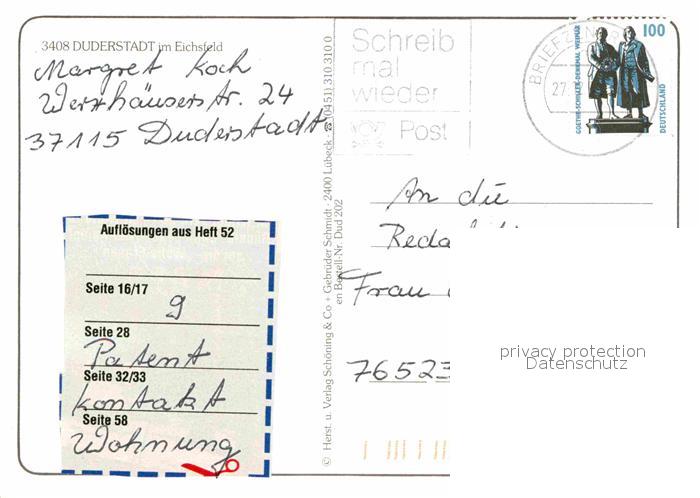 3408 DUDERSTADT im Eichsfeld
Margret Koch
Werxhäuserstr. 24
37115 Duderstadt
Auflösungen aus Heft 52
Seite 16/17
9
Seite 28
Patent
Seite 32/33
Kontakt
Seite 58
Wohnung
© Herst. u. Verlag Schöning & Co + Gebrüder Schmidt · 2400 Lübeck · ☎ (0451) 310 310 0
Bestell-Nr. Dud 202
Schreib
mal
wieder
Post
BRIEFZEN
27.
100
GOETHE-SCHILLER-DENKMAL WEIMAR
DEUTSCHLAND
An die
Reda
Frau
76523
privacy protection
Datenschutz